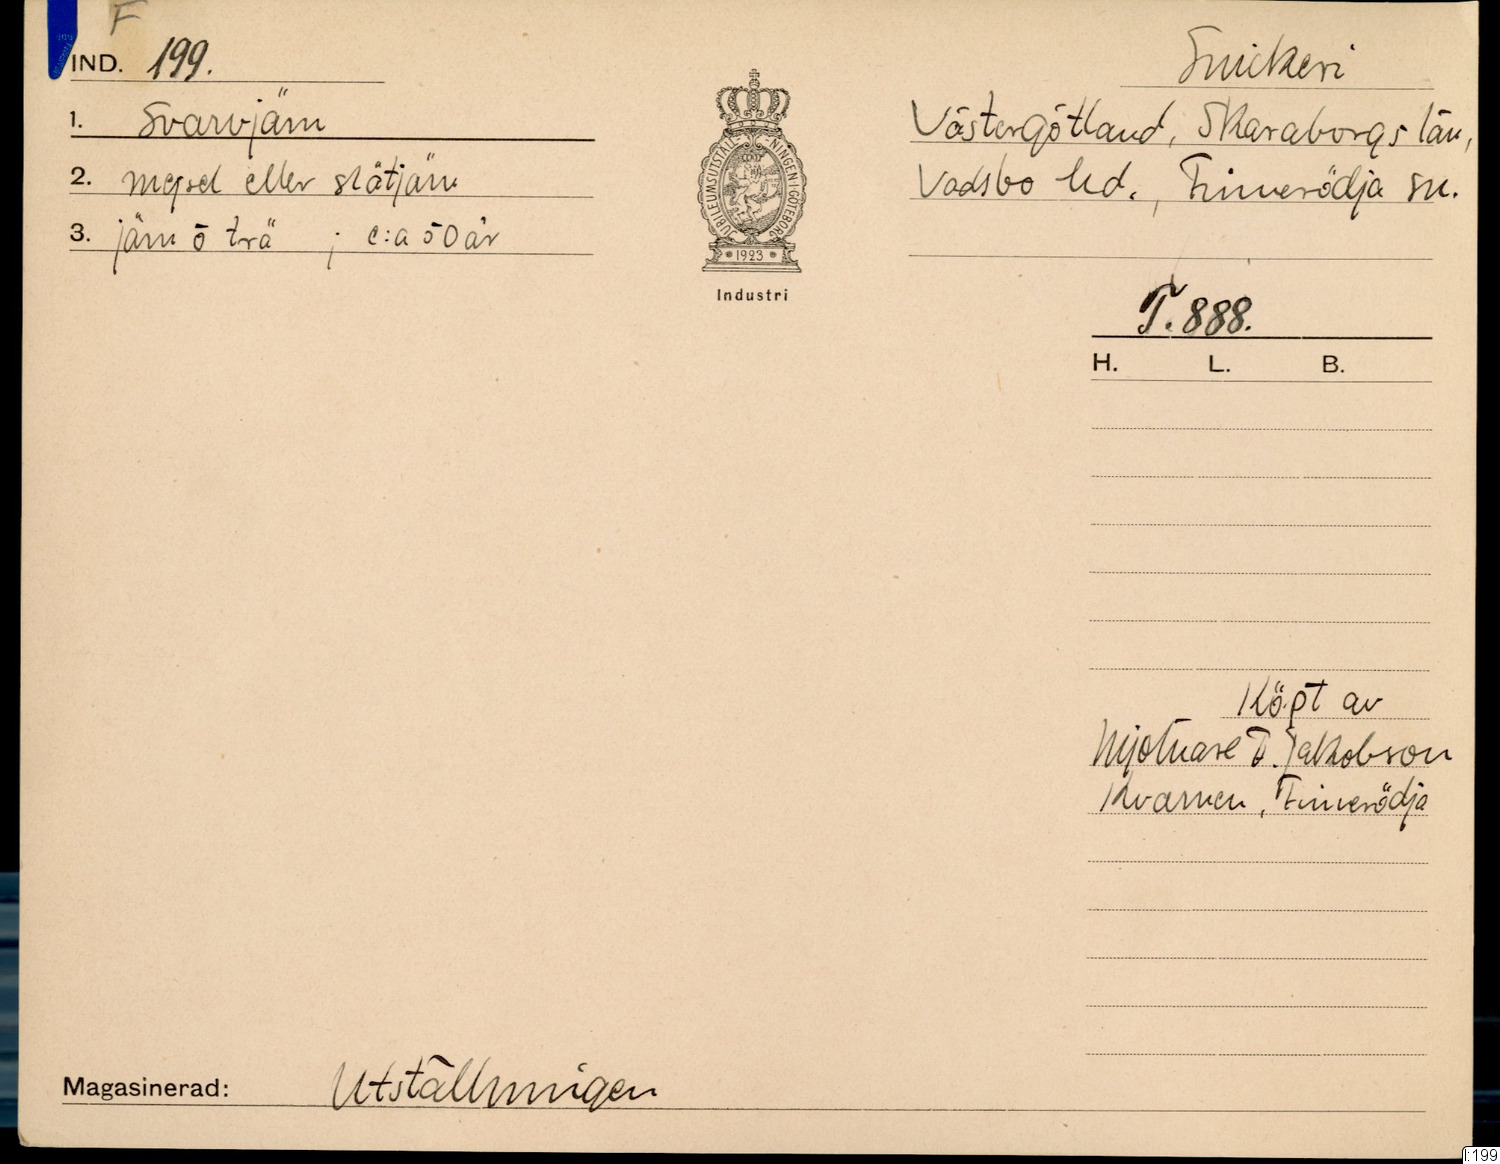 F
IND. 199.
1. Svarvjärn
2. mejsel eller slätjärn
3. järn o trä ; c:a 50 år
JUBILEUMSUTSTÄLLNINGEN I GÖTEBORG
1923
Industri
Snickeri
Västergötland, Skaraborgs län,
Vadsbo hd., Finnerödja sn.
T. 888.
H. L. B.
Köpt av
Mjölnare F. Jakobson
Kvarnen, Finnerödja
Magasinerad: Utställningen
I:199